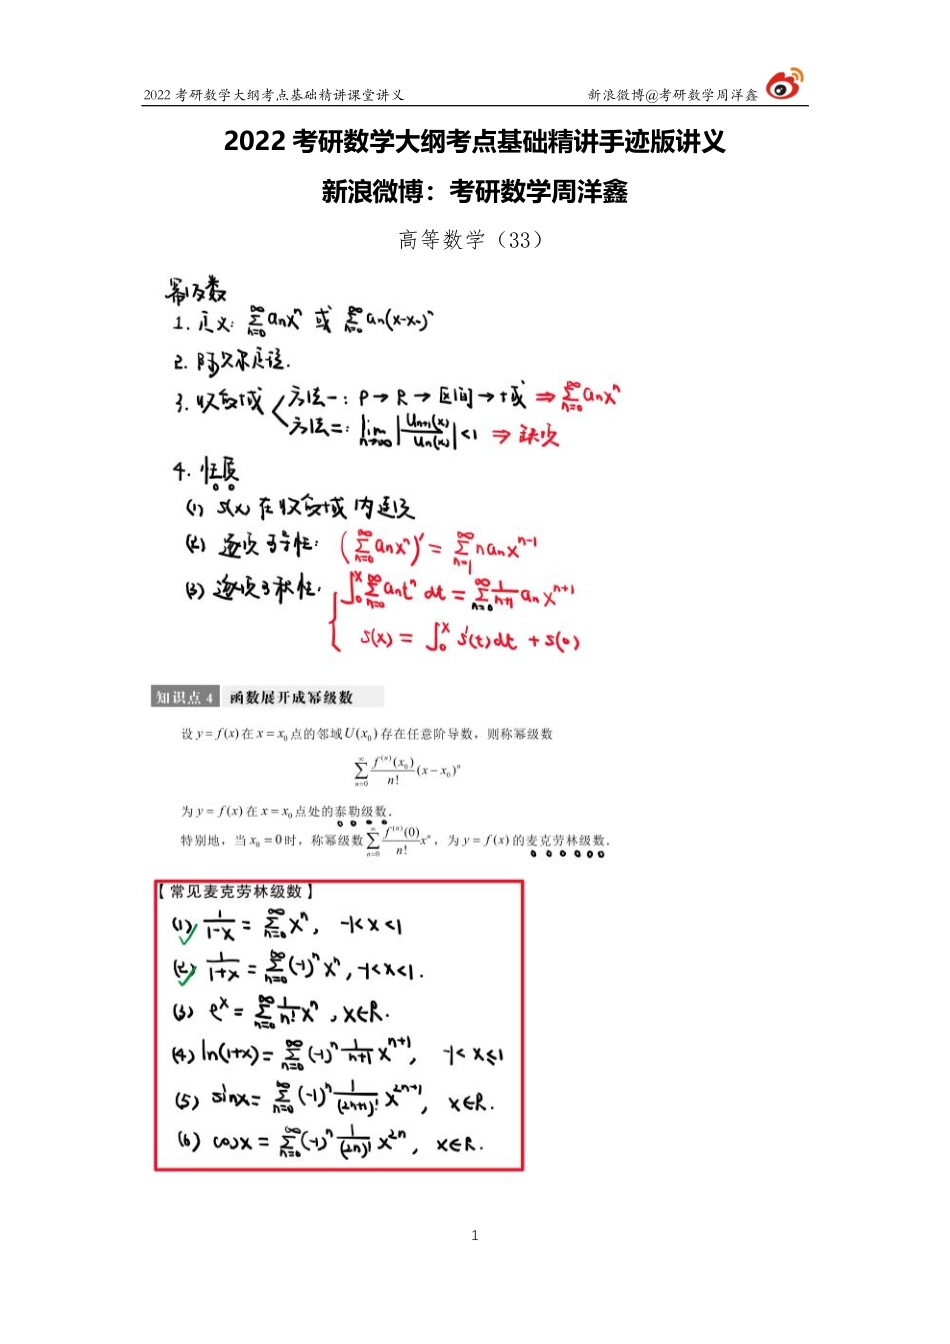 2022 考研数学大纲考点基础精讲课堂讲义 新浪微博@考研数学周洋鑫
2022 考研数学大纲考点基础精讲手迹版讲义
新浪微博：考研数学周洋鑫
高等数学（33）
幂级数
1. 定义: ∑_{n=0}^∞ aₙxⁿ 或 ∑_{n=0}^∞ aₙ(x-x₀)ⁿ
2. 阿贝尔定理.
3. 收敛域 方法一: ρ → R → 区间 → 域 ⇒ ∑_{n=0}^∞ aₙxⁿ
方法二: lim_{n→∞} |uₙ₊₁(x)/uₙ(x)| < 1 ⇒ 缺项
4. 性质
(1) S(x) 在收敛域内连续
(2) 逐项可导性: (∑_{n=0}^∞ aₙxⁿ)' = ∑_{n=1}^∞ naₙxⁿ⁻¹
(3) 逐项可积性: ∫₀ˣ ∑_{n=0}^∞ aₙtⁿ dt = ∑_{n=0}^∞ 1/(n+1) aₙxⁿ⁺¹
S(x) = ∫₀ˣ S'(t)dt + S(0)
知识点 4 函数展开成幂级数
设 y = f(x) 在 x = x₀ 点的邻域 U(x₀) 存在任意阶导数，则称幂级数
∑_{n=0}^∞ f⁽ⁿ⁾(x₀)/n! (x - x₀)ⁿ
为 y = f(x) 在 x = x₀ 点处的泰勒级数.
特别地，当 x₀ = 0 时，称幂级数 ∑_{n=0}^∞ f⁽ⁿ⁾(0)/n! xⁿ，为 y = f(x) 的麦克劳林级数.
【常见麦克劳林级数】
(1) 1/(1-x) = ∑_{n=0}^∞ xⁿ, -1<x<1
(2) 1/(1+x) = ∑_{n=0}^∞ (-1)ⁿxⁿ, -1<x<1.
(3) eˣ = ∑_{n=0}^∞ 1/n! xⁿ, x∈R.
(4) ln(1+x) = ∑_{n=0}^∞ (-1)ⁿ 1/(n+1) xⁿ⁺¹, -1<x≤1
(5) sinx = ∑_{n=0}^∞ (-1)ⁿ 1/(2n+1)! x²ⁿ⁺¹, x∈R.
(6) cosx = ∑_{n=0}^∞ (-1)ⁿ 1/(2n)! x²ⁿ, x∈R.
1